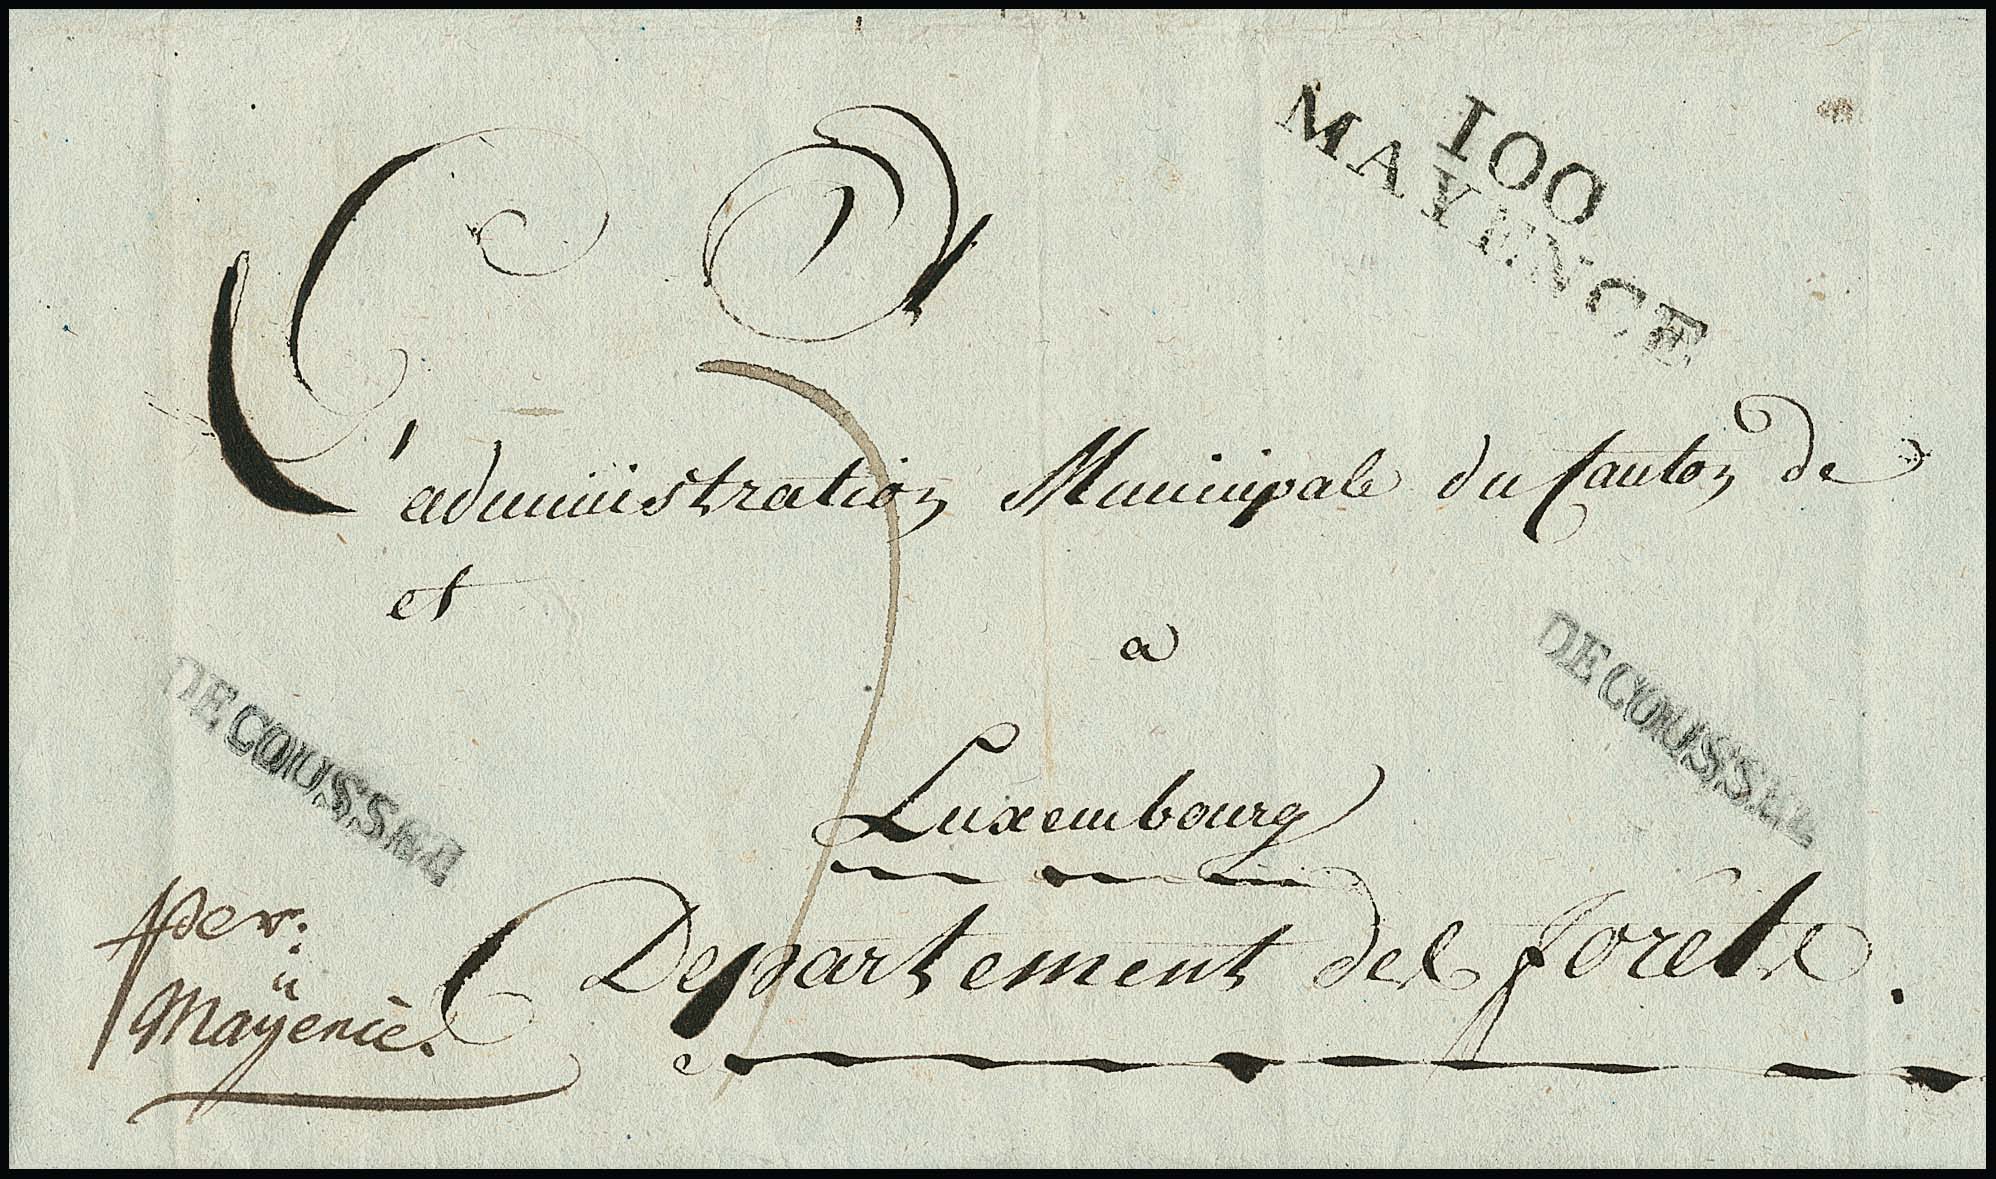 100
MAYENCE
L'administration Municipale du Canton de
et
a
DECOUSSEE
DECOUSSEE
Luxembourg
Departement des forêts.
per:
Mayence.